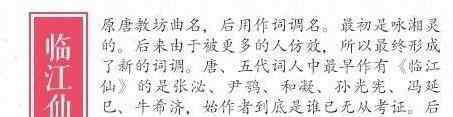 临江仙
原唐教坊曲名，后用作词调名。最初是咏湘灵
的。后来由于被更多的人仿效，所以最终形成
了新的词调。唐、五代词人中最早作有《临江
仙》的是张泌、尹鹗、和凝、孙光宪、冯延
巳、牛希济，始作者到底是谁已无从考证。后